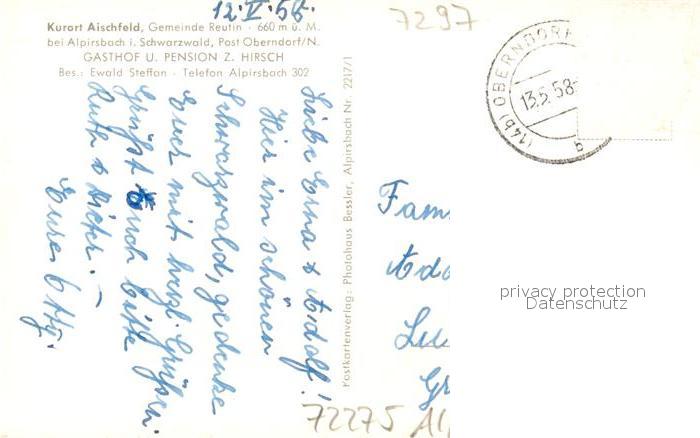 12.V.58.
7297
Kurort Aischfeld, Gemeinde Reutin · 660 m ü. M.
bei Alpirsbach i. Schwarzwald, Post Oberndorf/N.
GASTHOF U. PENSION Z. HIRSCH
Bes.: Ewald Steffan · Telefon Alpirsbach 302
Liebe Erna & Adolf!
Hier im schönen
Schwarzwald, gedenke
Euer mit herzl. Grüßen.
Grüßt Euch bitte
Ruth & Dieter. –
Eure Otty.
Postkartenverlag: Photohaus Bessler, Alpirsbach Nr. 2217/1
(14b) OBERNDORF
13.5.58-
b
Fam
Ado
Lu
Gr
privacy protection
Datenschutz
72275 Al